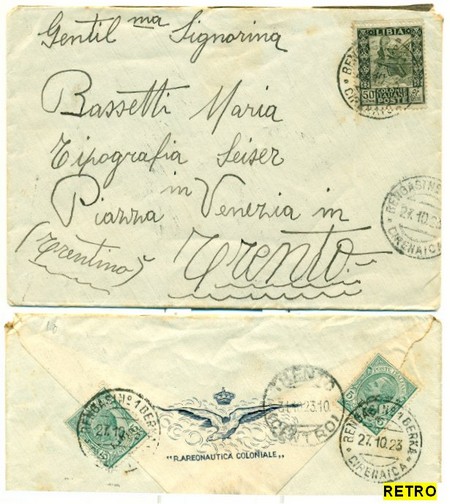 Gentil ma Signorina
Bassetti Maria
Tipografia Seiser
in
Piazza Venezia in
(Trentino) Trento.
LIBIA
50
COLONIE ITALIANE
POSTE
BENGASI No
27.10.23
CIRENAICA
BENGASI No 1 BERKA
27.10
TRENTO
31.10.23.10
(CENTRO)
"R.AREONAUTICA COLONIALE,,
BENGASI No 1 BERKA
27.10.23
CIRENAICA
RETRO